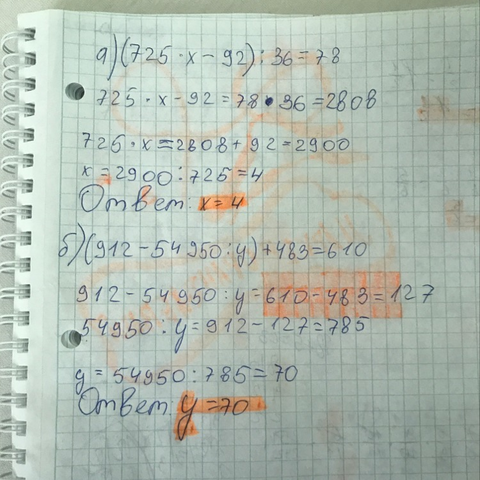 а) (725 · x − 92) : 36 = 78
725 · x − 92 = 78 · 36 = 2808
725 · x = 2808 + 92 = 2900
x = 2900 : 725 = 4
Ответ: x = 4
б) (912 − 54950 : y) + 483 = 610
912 − 54950 : y = 610 − 483 = 127
54950 : y = 912 − 127 = 785
y = 54950 : 785 = 70
Ответ: y = 70